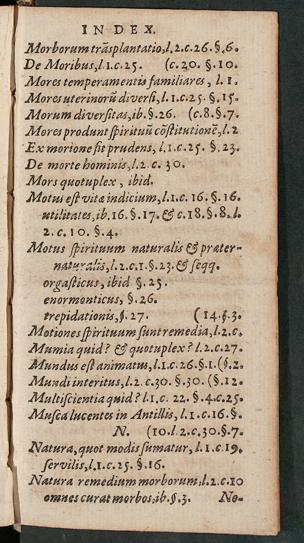 INDEX.
Morborum trãsplantatio, l.2.c.26.§.6.
De Moribus, l.1.c.25. (c.20. §.10.
Mores temperamentis familiares, l.1.
Mores uterinorũ diversi, l.1.c.25. §.15.
Morum diversitas, ib.§.26. (c.8.§.7.
Mores produnt spirituũ cõstitutionẽ, l.2
Ex morione fit prudens, l.1.c.25. §.23.
De morte hominis, l.2.c. 30.
Mors quotuplex, ibid.
Motus est vitæ indicium, l.1.c.16. §.16.
utilitates, ib.16. §.17. & c.18.§.8.l.
2.c.10. §.4.
Motus spirituum naturalis & præter-
naturalis, l.2.c.1.§.23.& seqq.
orgasticus, ibid §.25.
enormonticus, §.26.
trepidationis, §.27. (14.§.3.
Motiones spirituum sunt remedia, l.2.c.
Mumia quid? & quotuplex? l.2.c.27.
Mundus est animatus, l.1.c.26.§.1.(§.2.
Mundi interitus, l.2.c.30.§.30. (§.12.
Multiscientia quid? l.1.c. 22. §.4.c.25.
Musca lucentes in Antillis, l.1.c.16.§.
N. (10.l.2.c.30.§.7.
Natura, quot modis sumatur, l.1.c.19.
servilis, l.1.c.25. §.16.
Natura remedium morborum, l.2.c.10
omnes curat morbos, ib.§.3. No-